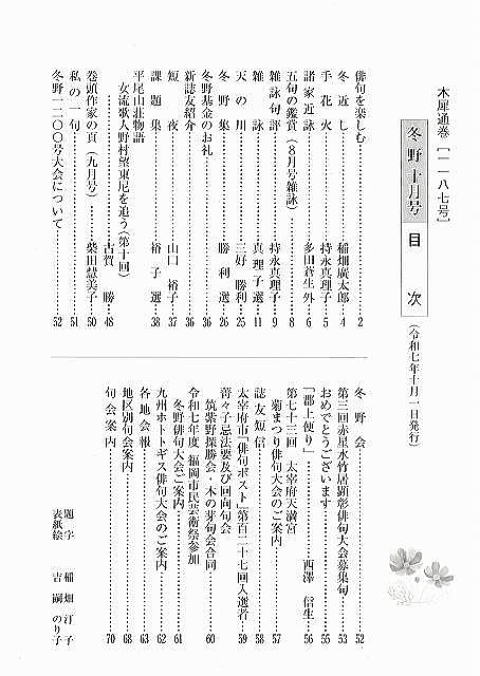 木犀通巻［一一八七号］
冬野十月号 目次 （令和七年十月一日発行）
俳句を楽しむ 2
冬近し 稲畑廣太郎 4
手花火 持永真理子 5
諸家近詠 多田蒼生外 6
五句の鑑賞（８月号雑詠） 8
雑詠句評 持永真理子 9
雑詠 真理子選 11
天の川 三好勝利 25
冬野集 勝利選 26
冬野基金のお礼 36
新誌友紹介 36
短夜 山口裕子 37
課題集 裕子選 38
平尾山荘物語
女流歌人野村望東尼を追う（第十回） 古賀勝 48
巻頭作家の頁（九月号） 柴田慧美子 50
私の一句 51
冬野一二〇〇号大会について 52
冬野会 52
第三回赤星水竹居顕彰俳句大会募集句 53
おめでとうございます 55
「郡上便り」 西澤信生 56
第七十三回 太宰府天満宮
菊まつり俳句大会のご案内 57
誌友短信 58
太宰府市「俳句ポスト」第百二十七回入選者 59
菁々子忌法要及び回向句会
筑紫野探勝会・木の芽句会合同 60
令和七年度 福岡市民芸術祭参加
冬野俳句大会ご案内 61
九州ホトトギス俳句大会のご案内 62
各地会報 63
地区別句会案内 68
句会案内 70
題字 稲畑汀子
表紙絵 吉嗣のり子